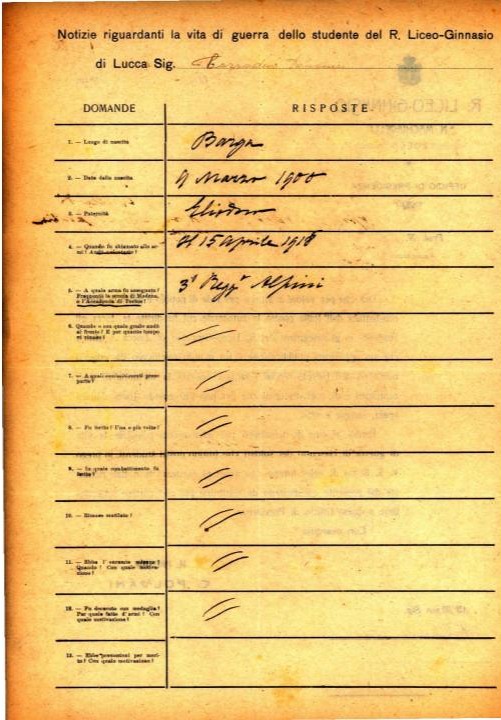 Notizie riguardanti la vita di guerra dello studente del R. Liceo-Ginnasio
di Lucca Sig.
DOMANDE RISPOSTE
1. — Luogo di nascita Barga
2. — Data della nascita 9 Marzo 1900
3. — Paternità Eliodoro
4. — Quando fu chiamato alle armi? Il 15 Aprile 1918
5. — A quale arma fu assegnato? 3° Regg. Alpini
Frequentò la scuola di Modena,
o l'Accademia di Torino?
6. Quando e con quale grado andò
al fronte? E per quanto tempo
vi rimase?
7. — A quali combattimenti prese
parte?
8. — Fu ferito? Una o più volte?
9. — In quale combattimento fu
ferito?
10. — Rimase mutilato?
11. — Ebbe l'encomio
Quando? Con quale motiva-
zione?
12. — Fu decorato con medaglia?
Per quale fatto d'armi? Con
quale motivazione?
13. — Ebbe promozioni per meri-
to? Con quale motivazione?